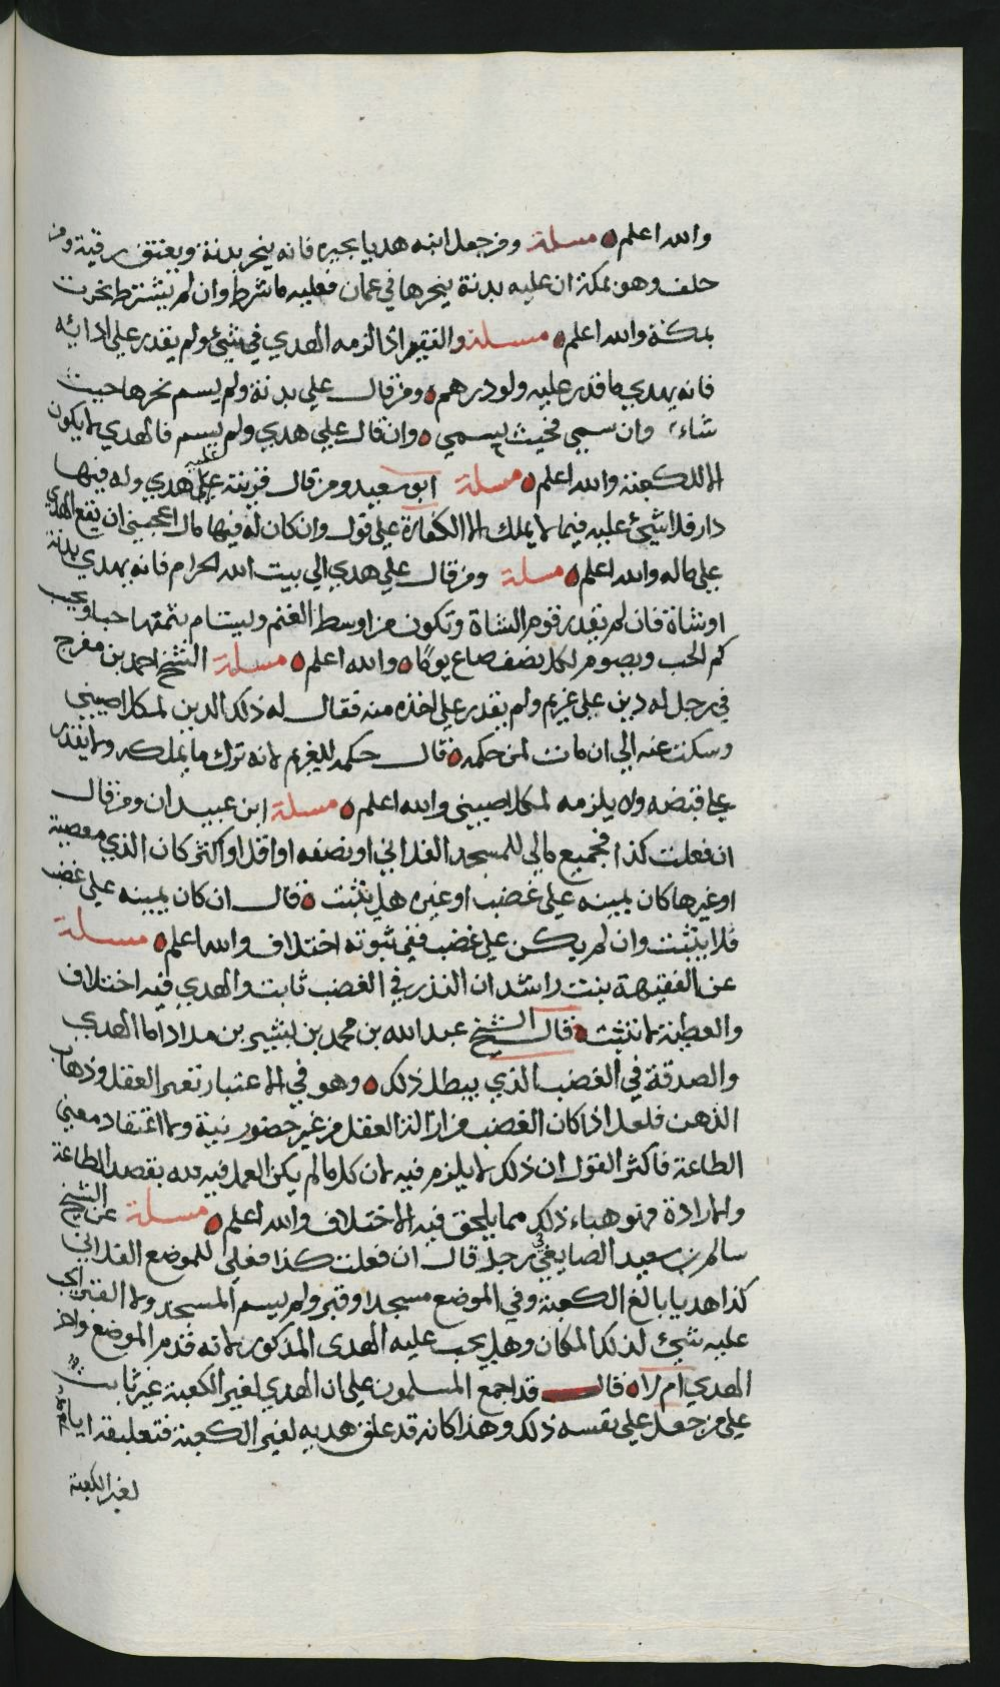 والله اعلم ه مسلة ومن جعل ابنه هديا يجيره فانه ينحر بدنة ويعتق رقبة ومن
حلف وهو بمكة ان عليه بدنة ينحرها في عمان فعليه ما شرط وان لم يشترط نحرت
بمكة والله اعلم ه مسلة والفقير اذا لزمه الهدي في شيء ولم يقدر على ادائه
فانه يهدي ما قدر عليه ولو درهم ه ومن قال علي بدنة ولم يسم نحرها حيث
شاء وان سمى فحيث يسمي ه وان قال علي هدي ولم يسم فالهدي لا يكون
الا للكعبة والله اعلم ه مسلة ابو سعيد ومن قال قرية عليه هدي وله فيها
دار فلا شيء عليه فيما لا يملك الا الكفارة على قول وان كان له فيها مال اعجبني ان يقع الهدي
على ماله والله اعلم ه مسلة ومن قال علي هدي الى بيت الله الحرام فانه يهدي بدنة
او شاة فان لم يقدر قوم الشاة وتكون من اوسط الغنم وليستام بثمنها حبا ويحسب
كم الحب ويصوم لكل نصف صاع يوما ه والله اعلم ه مسلة الشيخ احمد بن مفرج
في رجل له دين على غريم ولم يقدر على اخذه منه فقال له ذلك الدين لمكلا اصيبني
وسكت عنه الى ان مات لمن حكمه ه قال حكمه للغريم لانه ترك ما يملكه ولا يقدر
على قبضه ولا يلزمه لمكلا اصيبني والله اعلم ه مسلة ابن عبيدان ومن قال
ان فعلت كذا فجميع مالي للمسجد الفلاني او نصفه او اقل او اكثر كان الذي معصية
او غيرها كان يمينه على غضب او غيره هل يثبت ه قال ان كان يمينه على غضب
فلا يثبت وان لم يكن على غضب ففي ثبوته اختلاف والله اعلم ه مسلة
عن الفقيهة بنت راشد ان النذر في الغضب ثابت والهدي فيه اختلاف
والعطية لا تثبت ه قال الشيخ عبدالله بن محمد بن بشير بن مداد اما الهدي
والصدقة في الغضب الذي يبطل ذلك ه وهو في الاعتبار تغير العقل وذهاب
الذهن فلعل اذا كان الغضب من ازالة العقل من غير حضور نية ولا اعتقاد معنى
الطاعة فاكثر القول ان ذلك لا يلزم فيه لان كل ما لم يكن العمل فيه لله بقصد الطاعة
والارادة فهو هباء ذلك مما يلحق فيه الاختلاف والله اعلم ه مسلة عن الشيخ
سالم بن سعيد الصايغي في رجل قال ان فعلت كذا فعلي للموضع الفلاني
كذا هديا بالغ الكعبة وفي الموضع مسجد او قبر ولم يسم المسجد ولا القبر ايجب
عليه شيء لذلك المكان وهل يجب عليه الهدي المذكور لانه قدم الموضع واخر
الهدي ام لا ه قال قد اجمع المسلمون على ان الهدي لغير الكعبة غير ثابت
على من جعل على نفسه ذلك وهذا كانه قد علق هديه لغير الكعبة فتعليقه اياه
لغير الكعبة